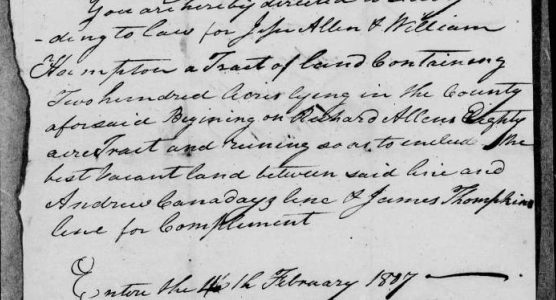 You are hereby directed to
-ding to law for Jesse Allen & William
Hampton a Tract of land Containing
Two hundred Acres lying in the County
aforsaid Begining on Richard Allens Eighty
acre Tract and runing so as to includ the
best Vacant land between said line and
Andrew Canadays line & James Thompkins
line for Complement
Enter the 4th February 1807